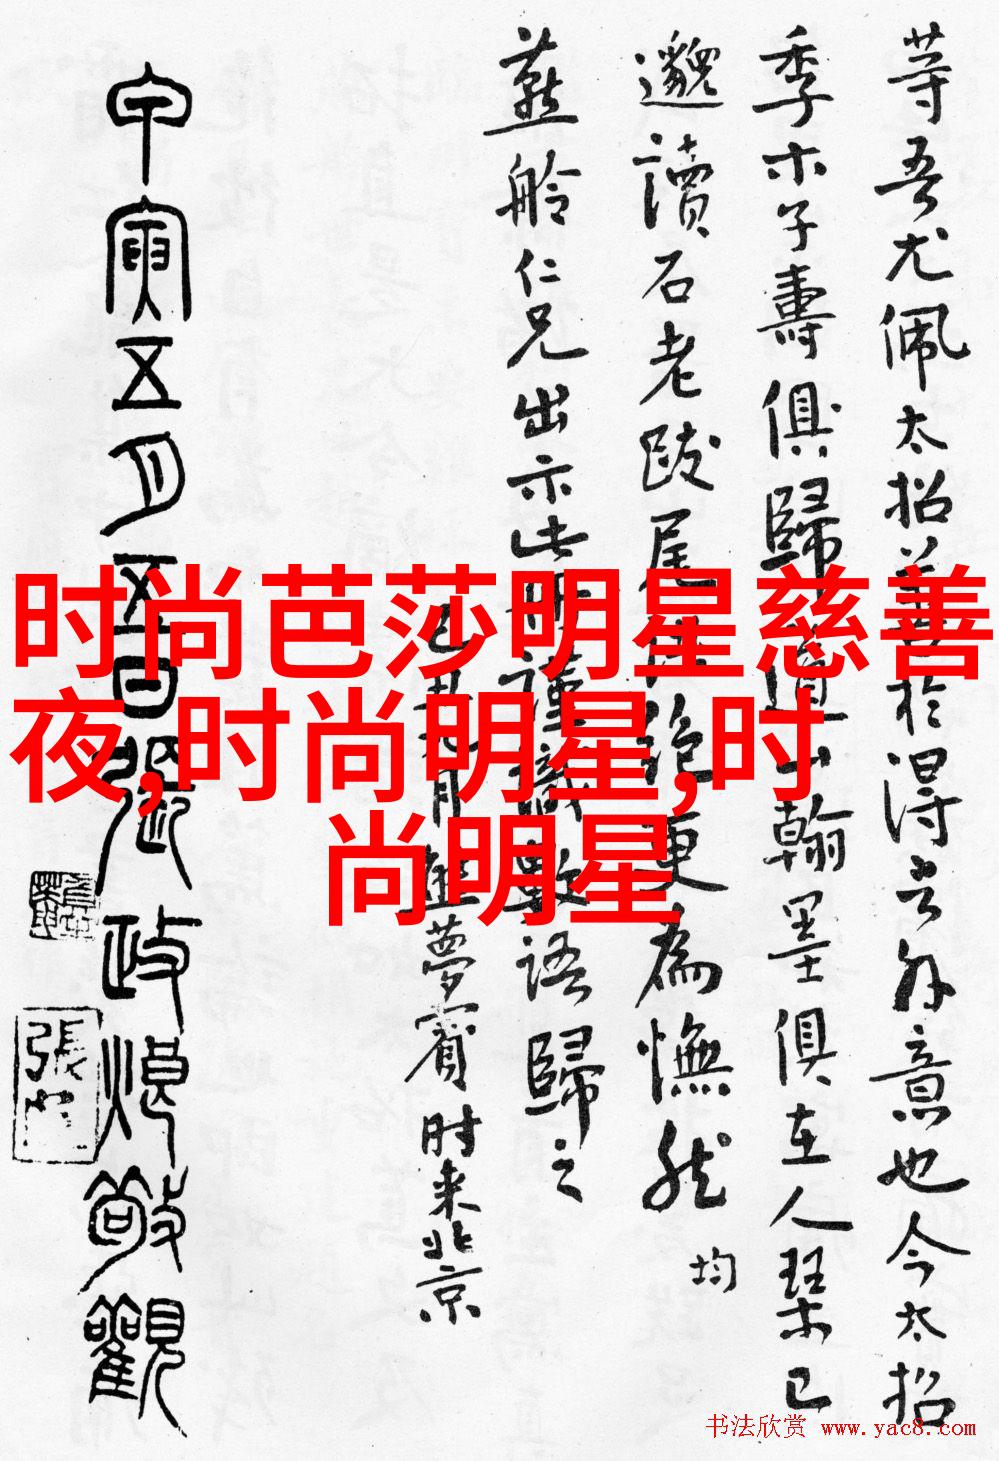 等吾尤佩太招
於得言外意也今太招
季木子壽俱歸道山翰墨俱在人琴已
邈讀石老跋尾
更為憮然
均
燕舲仁兄出示此
謹識數語歸之
夢賓时来北京
甲寅五月五日張政烺敬觀
时尚芭莎明星慈善
夜,时尚明星,时
尚明星
书法欣赏 www.yac8.com